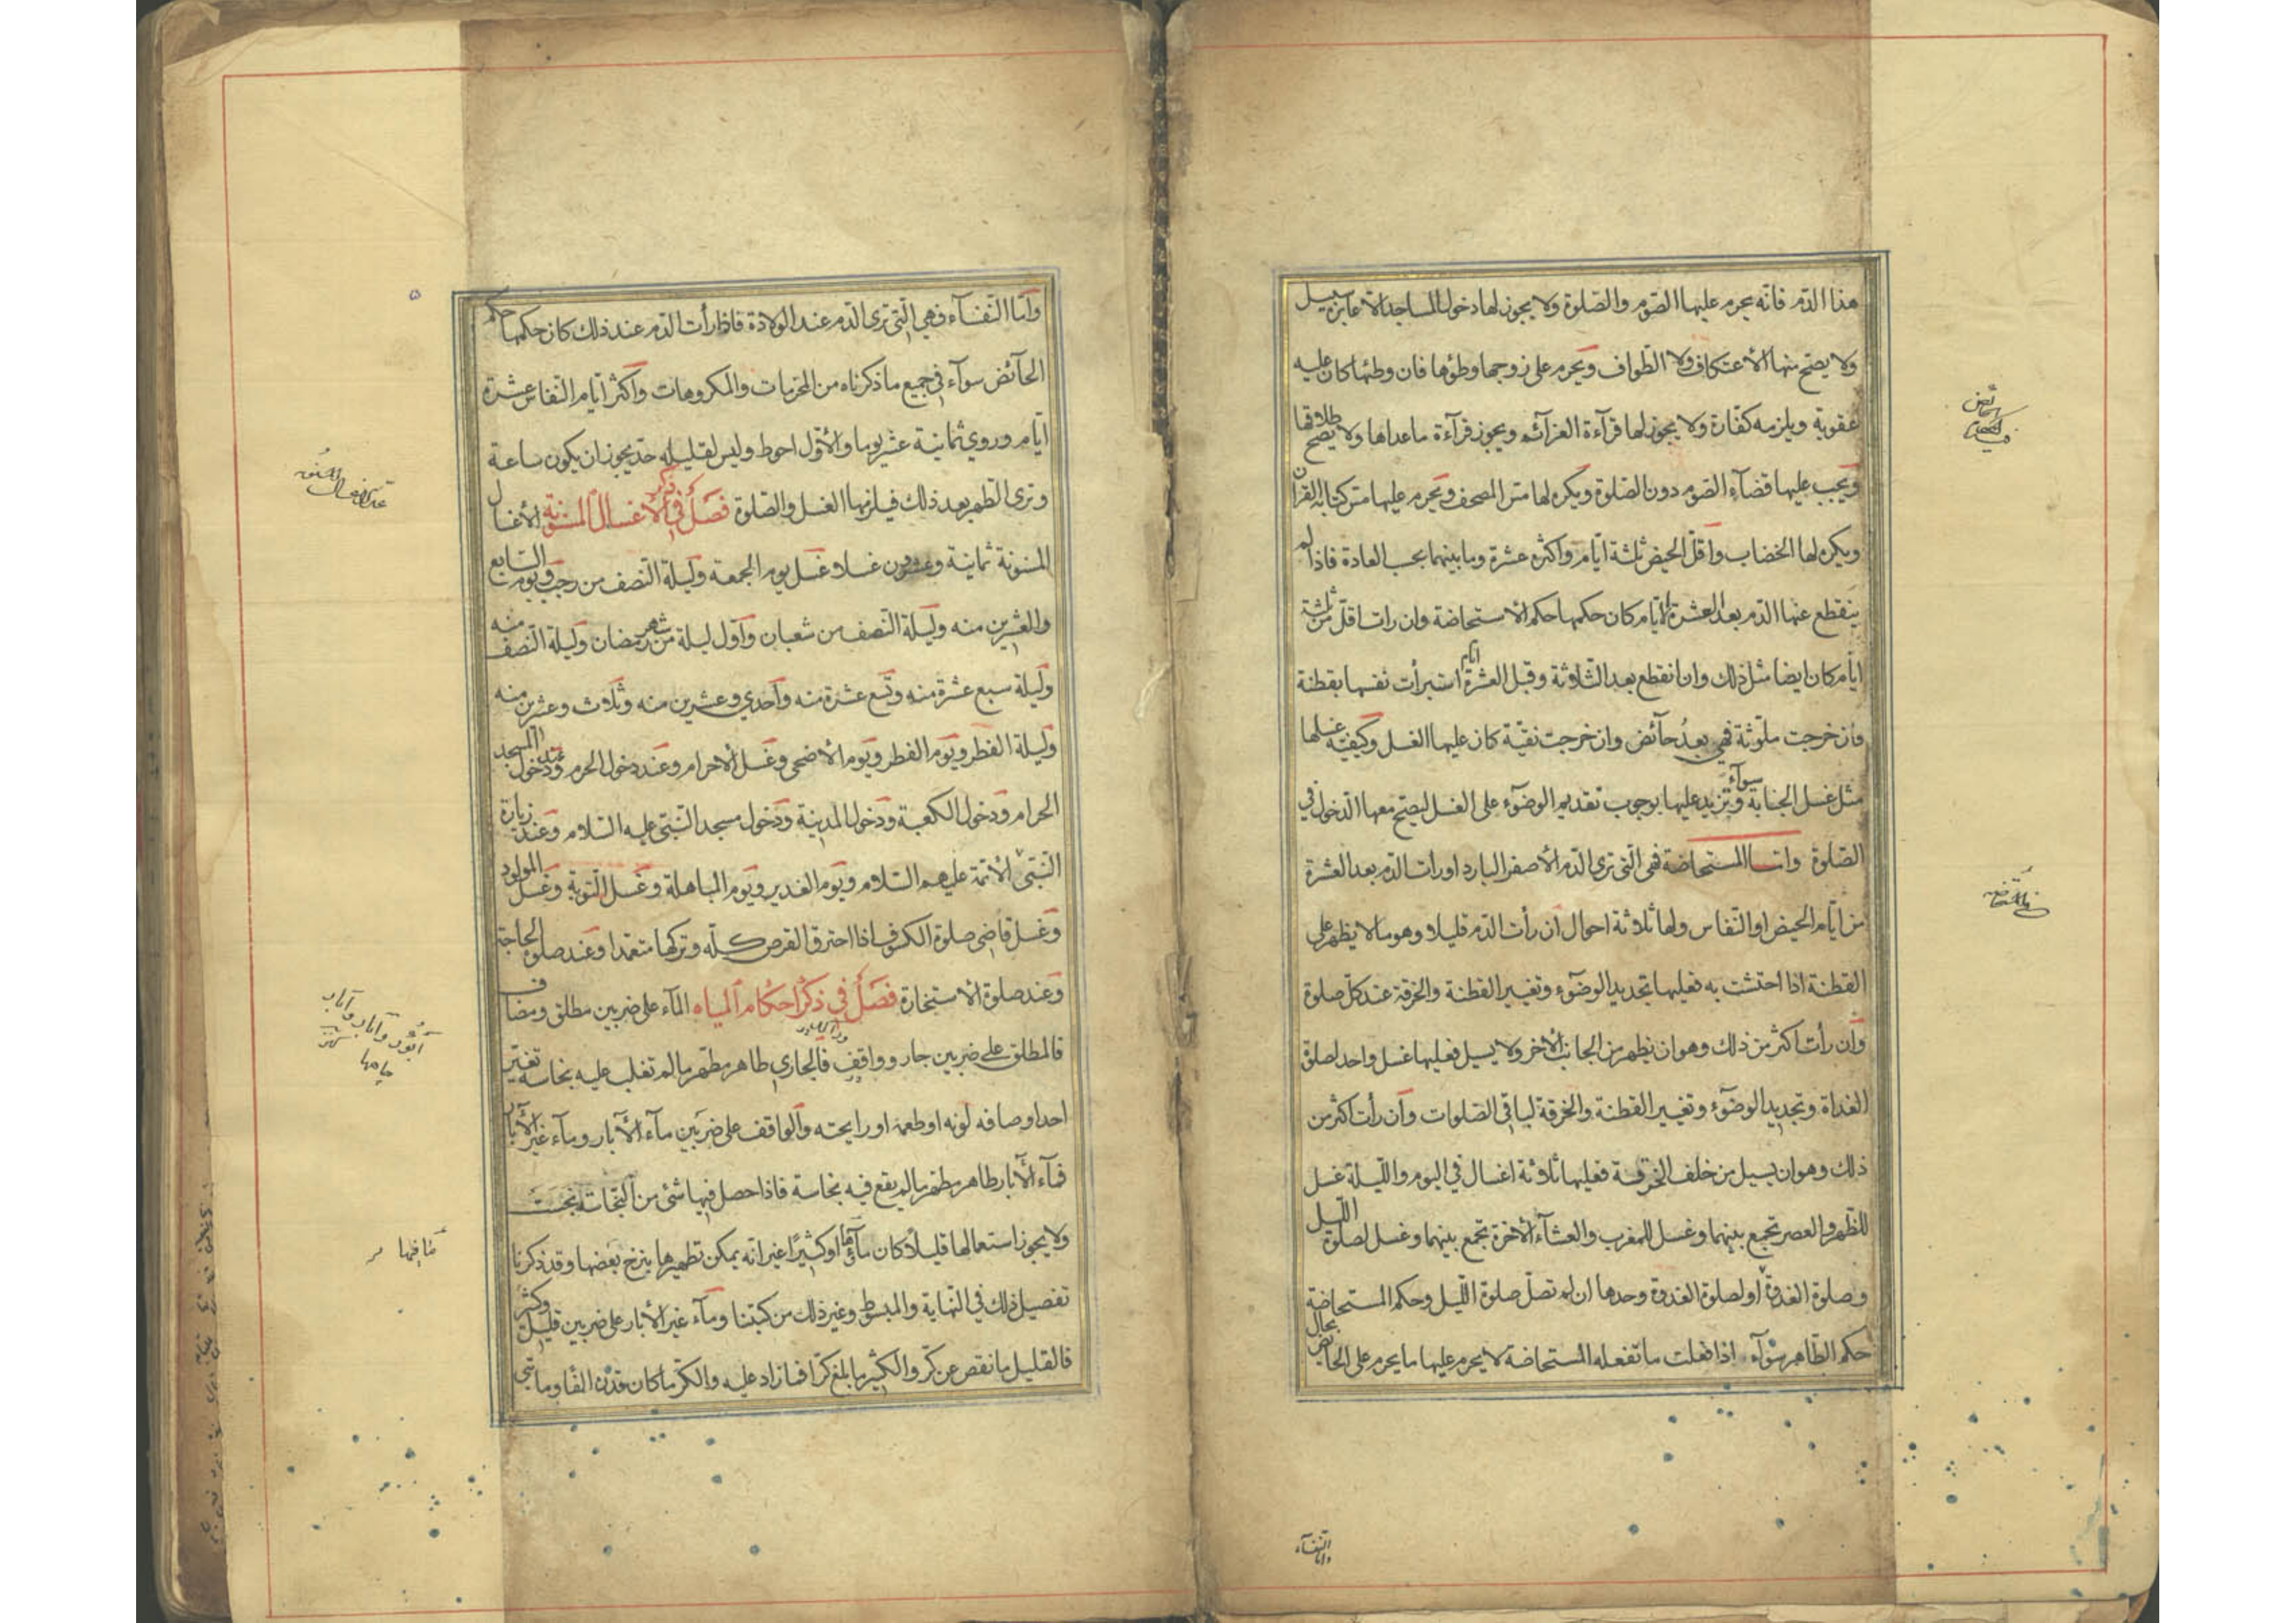 هذا الدّم فانّه يحرم عليها الصّوم والصّلوة ولا يجوز لها دخول المساجد الّا عابرة سبيل
ولا يصحّ منها الأعتكاف ولا الطّواف ويحرم على زوجها وطؤها فان وطئها كان عليه
عقوبة ويلزمه كفّارة ولا يجوز لها قرآءة العزآئم ويجوز قرآءة ماعداها ولا يصحّ طلاقها
ويجب عليها قضآء الصّوم دون الصّلوة ويكره لها مسّ المصحف ويحرم عليها مسّ كتابة القرآن
ويكره لها الخضاب واقلّ الحيض ثلثة ايّام واكثره عشرة وما بينهما بحسب العادة فاذا لم
ينقطع عنها الدّم بعد العشرة الايّام كان حكمها حكم الاستحاضة وان رات اقلّ من ثلثة
ايّام كان ايضا مثل ذلك وان انقطع بعد الثّلاثة وقبل العشرة ايّام استبرأت نفسها بقطنة
فان خرجت ملوّثة فهي بعدُ حآئض وان خرجت نقيّة كان عليها الغسل وكيفيّة غسلها
مثل غسل الجنابة سوآء وتزيد عليها بوجوب تقديم الوضوء على الغسل ليصحّ معها الدّخول في
الصّلوة وامّا المستحاضة فهى التى ترى الدّم الأصفر البارد او رات الدّم بعد العشرة
من ايّام الحيض او النّفاس ولها ثلاثة احوال ان رأت الدّم قليلا وهو ما لا يظهر على
القطنة اذا احتشت به فعليها تجديد الوضوء وتغيير القطنة والخرقة عند كلّ صلوة
وان رأت اكثر من ذلك وهو ان يظهر من الجانب الأخر ولا يسيل فعليها غسل واحد لصلوة
الغداة وتجديد الوضوء وتغيير القطنة والخرقة لباقي الصّلوات وان رأت اكثر من
ذلك وهو ان يسيل من خلف الخرقة فعليها ثلاثة اغسال في اليوم واللّيلة غسل
للظّهر والعصر تجمع بينهما وغسل للمغرب والعشآء الأخرة تجمع بينهما وغسل لصلوة اللّيل
وصلوة الغدوة او لصلوة الغدوة وحدها ان لم تصلّ صلوة اللّيل وحكم المستحاضة
حكم الطّاهر سوآء اذا فعلت ما تفعله المستحاضة لا يحرم عليها ما يحرم على الحائض بحال
وامّا النّفسآء
وامّا النّفسآء فهي الّتى ترى الدّم عند الولادة فاذا رأت الدّم عند ذلك كان حكمها حكم
الحآئض سوآء في جميع ما ذكرناه من المحرّمات والمكروهات واكثر ايّام النّفاس عشرة
ايّام وروي ثمانية عشر يوما والأوّل احوط وليس لقليله حدّ يجوز ان يكون ساعة
وترى الطّهر بعد ذلك فيلزمها الغسل والصّلوة فصل في ذكر الأغسال المسنونة الأغسال
المسنونة ثمانية وعشرون غسلا وغسل يوم الجمعة وليلة النّصف من رجب ويوم السّابع
والعشرين منه وليلة النّصف من شعبان واوّل ليلة من شهر رمضان وليلة النّصف منه
وليلة سبع عشرة منه وتسع عشرة منه واحدي وعشرين منه وثلاث وعشرين منه
وليلة الفطر ويوم الفطر ويوم الأضحى وغسل الأحرام وعند دخول الحرم وعند دخول المسجد
الحرام ودخول الكعبة ودخول المدينة ودخول مسجد النّبيّ عليه السّلام وعند زيارة
النّبيّ والأئمّة عليهم السّلام ويوم الغدير ويوم المباهلة وغسل التّوبة وغسل المولود
وغسل قاضى صلوة الكسوف اذا احترق القرص كلّه وتركها متعمّدا وعند صلوة الحاجة
وعند صلوة الاستخارة فصل في ذكر احكام المياه المآء على ضربين مطلق ومضاف
فالمطلق على ضربين جار وواقف فالجاري طاهر مطهّر ما لم تغلب عليه نجاسة تغيّر
احد اوصافه لونه او طعمه او رايحته والواقف على ضربين مآء الأبار ومآء غير الأبار
فمآء الأبار طاهر مطهّر ما لم يقع فيه نجاسة فاذا حصل فيها شئ من النّجاسة نجست
ولا يجوز استعمالها قليلا كان مآؤها او كثيرًا غير انّه يمكن تطهيرها بنزح بعضها وقد ذكرنا
تفصيل ذلك في النّهاية والمبسوط وغير ذلك من كتبنا ومآء غير الأبار على ضربين قليل وكثير
فالقليل ما نقص عن كرّ والكثير ما بلغ كرّا فما زاد عليه والكرّ ما كان قدره الفا ومائتى